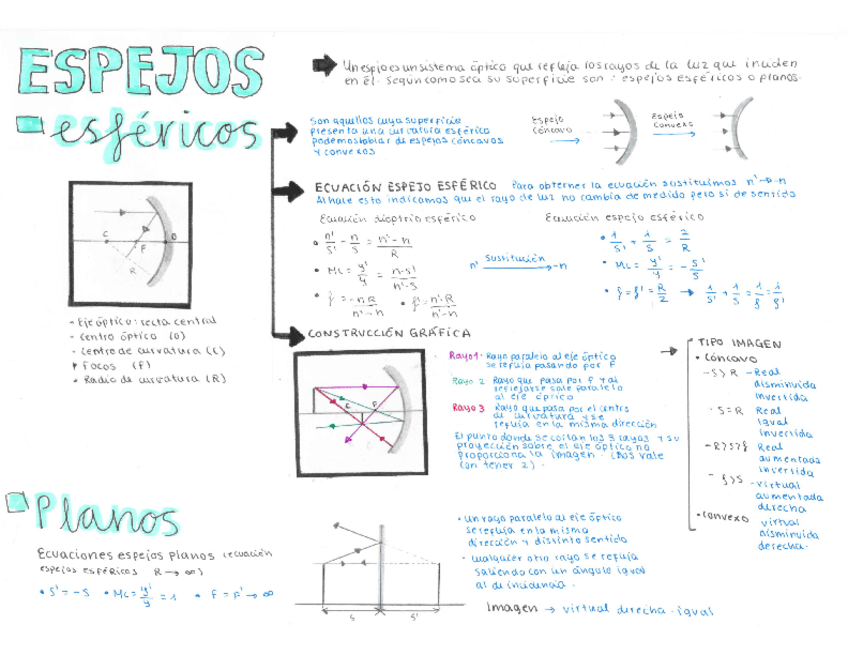 ESPEJOS
Un espejo es un sistema óptico que refleja los rayos de la luz que inciden
en él. Según como sea su superficie son: espejos esféricos o planos.
esféricos
Son aquellos cuya superficie
presenta una curvatura esférica
podemos hablar de espejos cóncavos
y convexos
Espejo
Cóncavo
Espejo
Convexo
ECUACIÓN ESPEJO ESFÉRICO Para obtener la ecuación sustituimos n' → -n
Al hacer esto indicamos que el rayo de luz no cambia de medio pero sí de sentido
Ecuación dioptrio esférico
n'/s' - n/s = n'-n/R
ML = y'/y = n·s'/n'·s
f = -nR/n'-n • f' = n'·R/n'-n
n' Sustitución → -n
Ecuación espejo esférico
1/s' + 1/s = 2/R
ML = y'/y = -s'/s
f = f' = R/2 → 1/s' + 1/s = 1/f = 1/f'
C
F
O
R
- Eje óptico: recta central
- Centro óptico (O)
- Centro de curvatura (C)
• Focos (F)
• Radio de curvatura (R)
CONSTRUCCIÓN GRÁFICA
C
F
Rayo 1· Rayo paralelo al eje óptico
se refleja pasando por F
Rayo 2 Rayo que pasa por F y al
reflejarse sale paralelo
al eje óptico
Rayo 3 Rayo que pasa por el centro
de curvatura y se
refleja en la misma dirección
El punto donde se cortan los 3 rayos y su
proyección sobre el eje óptico no
proporciona la imagen. (Nos vale
con tener 2).
TIPO IMAGEN
• Cóncavo
- S > R - Real
disminuida
invertida
· S = R Real
igual
invertida
- R > S > f Real
aumentada
invertida
- f > S - virtual
aumentada
derecha
• Convexo virtual
disminuida
derecha.
Planos
Ecuaciones espejos planos (ecuación
espejos esféricos R → ∞)
• S' = -S • ML = y'/y = 1 • F = F' → ∞
S
S'
• Un rayo paralelo al eje óptico
se refleja en la misma
dirección y distinto sentido
• Cualquier otro rayo se refleja
saliendo con un ángulo igual
al de incidencia.
Imagen → virtual derecha · igual